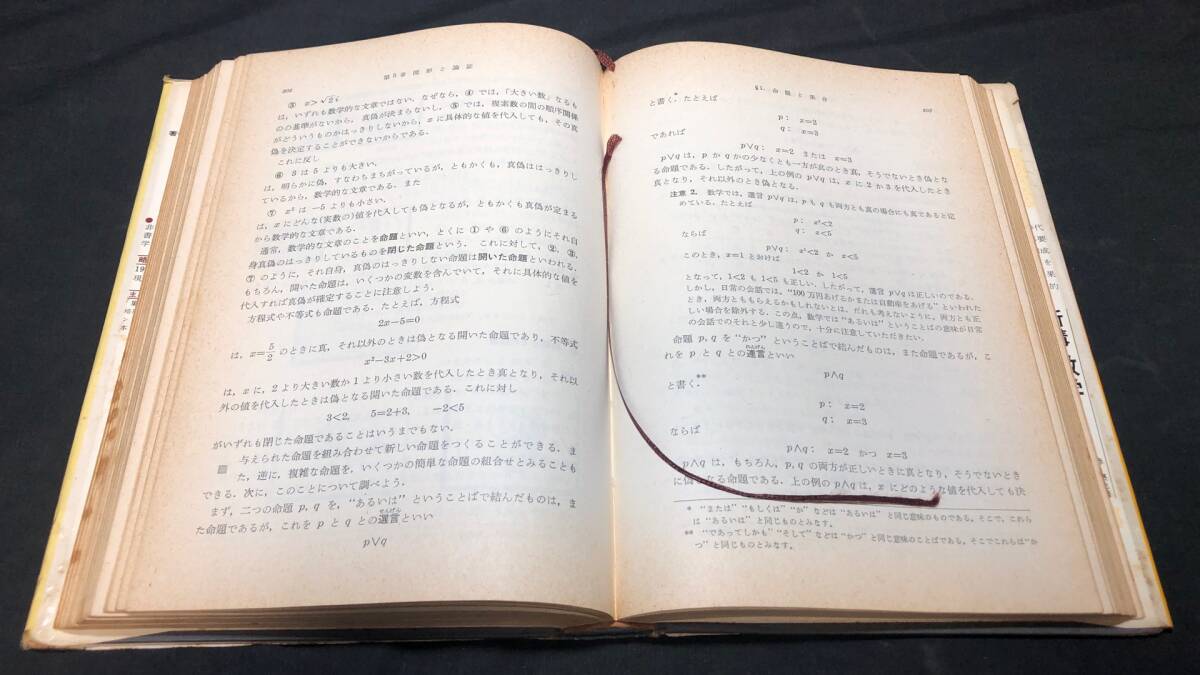 第5章 図形と論証
202
⑤ x>√2i
は，いずれも数学的な文章ではない．なぜなら，④では，「大きい数」なるも
のの基準がないから，真偽が決まらないし，⑤では，複素数の間の順序関係
がどういうものかはっきりしないから，xに具体的な値を代入しても，その真
偽を決定することができないからである．
これに反し
⑥ 3は5よりも大きい．
は，明らかに偽，すなわちまちがっているが，ともかくも，真偽ははっきりし
ているから，数学的な文章である．また
⑦ x²は−5よりも小さい．
は，xにどんな(実数の)値を代入しても偽となるが，ともかくも真偽が定まる
から数学的な文章である．
通常，数学的な文章のことを命題といい，とくに①や⑥のようにそれ自
身真偽のはっきりしているものを閉じた命題という．これに対して，②，③，
⑦のように，それ自身，真偽のはっきりしない命題は開いた命題といわれる．
もちろん，開いた命題は，いくつかの変数を含んでいて，それに具体的な値を
代入すれば真偽が確定することに注意しよう．
方程式や不等式も命題である．たとえば，方程式
2x−5=0
は，x=5/2 のときに真，それ以外のときは偽となる開いた命題であり，不等式
x²−3x+2>0
は，xに，2より大きい数か1より小さい数を代入したとき真となり，それ以
外の値を代入したときは偽となる開いた命題である．これに対し
3<2, 5=2+3, −2<5
がいずれも閉じた命題であることはいうまでもない．
与えられた命題を組み合わせて新しい命題をつくることができる．ま
た，逆に，複雑な命題を，いくつかの簡単な命題の組合せとみることも
できる．次に，このことについて調べよう．
まず，二つの命題p, qを，“あるいは”ということばで結んだものは，ま
た命題であるが，これをpとqとの選言といい
せんげん
p∨q
§1. 命題と集合
203
と書く．たとえば
p: x=2
q: x=3
であれば
p∨q: x=2 または x=3
p∨qは，pかqかの少なくとも一方が真のとき真，そうでないとき偽とな
る命題である．したがって，上の例のp∨qは，xに2か3を代入したとき
真となり，それ以外のとき偽となる．
注意 2. 数学では，選言p∨qは，pもqも両方とも真の場合にも真であると定
めている．たとえば
p: x²<2
q: x<5
ならば
p∨q: x²<2 か x<5
このとき，x=1とおけば
1<2 か 1<5
となって，1<2も1<5も正しい．したがって，選言p∨qは正しいのである．
しかし，日常の会話では，“100万円あげるかまたは自動車をあげる”といわれた
とき，両方とももらえるかもしれないとは，だれも考えないように，両方とも正
しい場合を除外する．この点，数学では“あるいは”ということばの意味が日常
の会話でのそれと少し違うので，十分に注意していただきたい．
命題p, qを“かつ”ということばで結んだものは，また命題であるが，こ
れんげん
れをpとqとの連言といい
p∧q
と書く．**
p: x=2
q: x=3
ならば
p∧q: x=2 かつ x=3
p∧qは，もちろん，p, qの両方が正しいときに真となり，そうでないとき
に偽となる命題である．上の例のp∧qは，xにどのような値を代入しても決
* “または”“もしくは”“か”などは“あるいは”と同じ意味のものである．そこで，これら
は“あるいは”と同じものとみなす．
** “であってしかも”“そして”などは“かつ”と同じ意味のことばである．そこでこれらは“か
つ”と同じものとみなす．